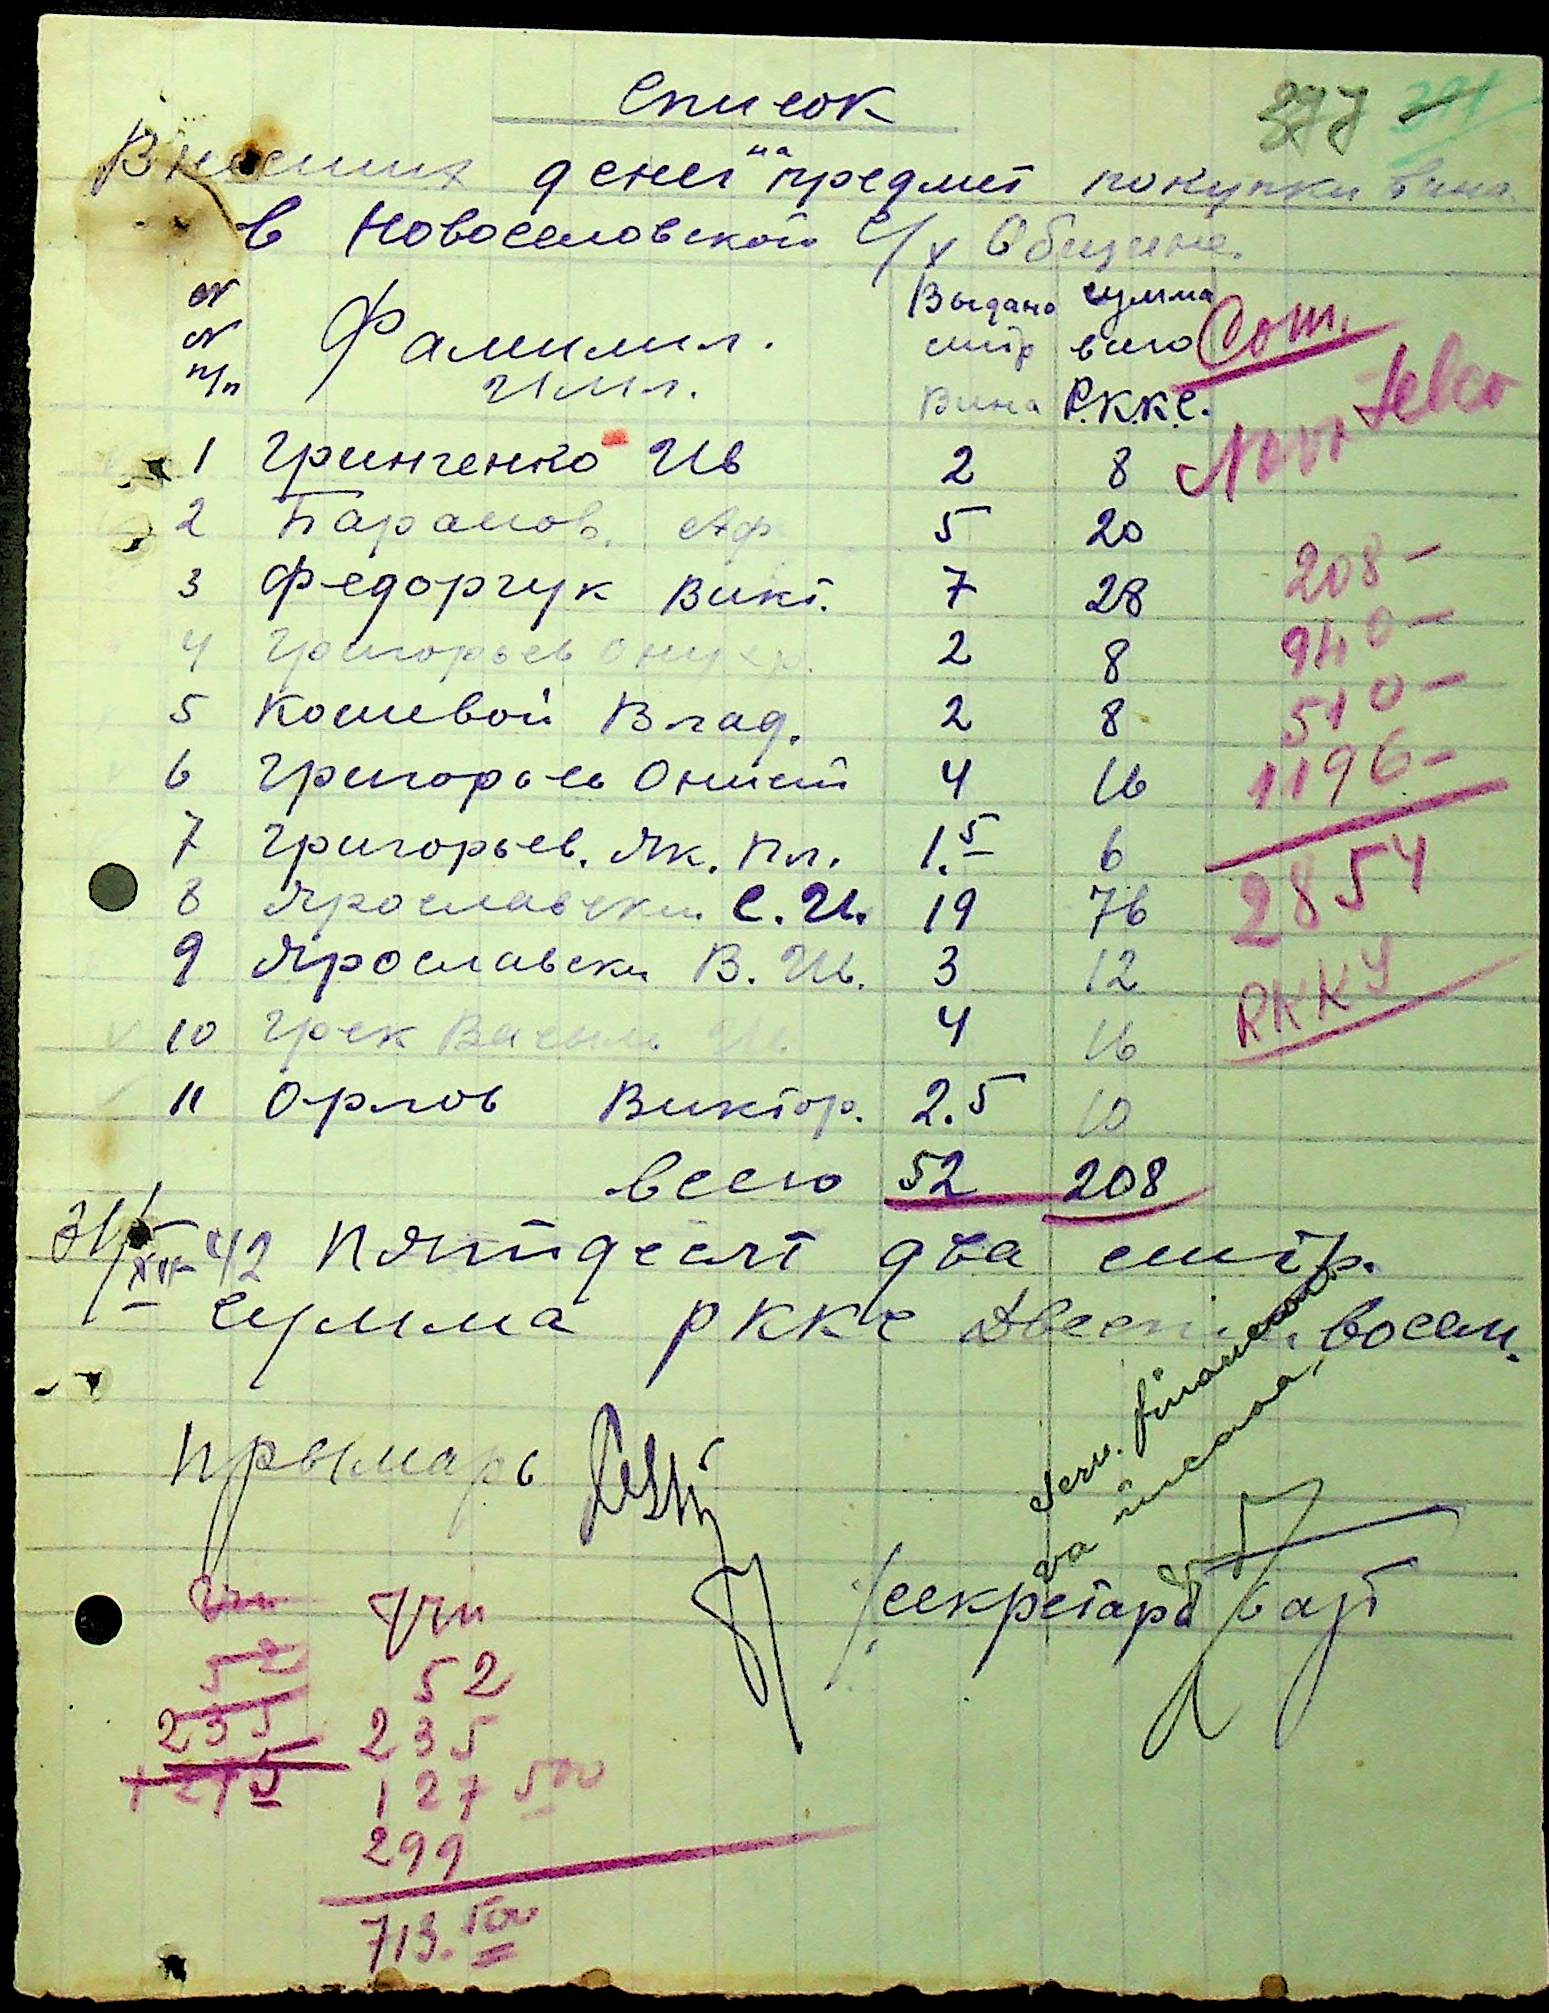 Список
377 391
Внесших денег на предмет покупки вина
в Новоселовской С/х Общине.
№ № п/п Фамилия. Имя. Выдано литр вина Сумма всего Р.К.К.С.
Com. Novo Selco
1 Гринченко Ив 2 8
2 Парамов. Аф 5 20
3 Федорчук Викт. 7 28
4 Григорьев Онуфр. 2 8
5 Кошевой Влад. 2 8
6 Григорьев Онисим 4 16
7 Григорьев. Як. Пл. 1.5 6
8 Ярославски С. Ив. 19 76
9 Ярославски В. Ив. 3 12
10 Грек Василь Ив 4 16
11 Орлов Виктор. 2.5 10
всего 52 208
208 –
940 –
510 –
1196 –
2854
RKKS
31/XII 42 Пятдесят два литр.
Сумма РККС Двести восем.
Serv. financiar
va incasa,
Прымарь
Секретарь
52
235
127 500
299
713.500